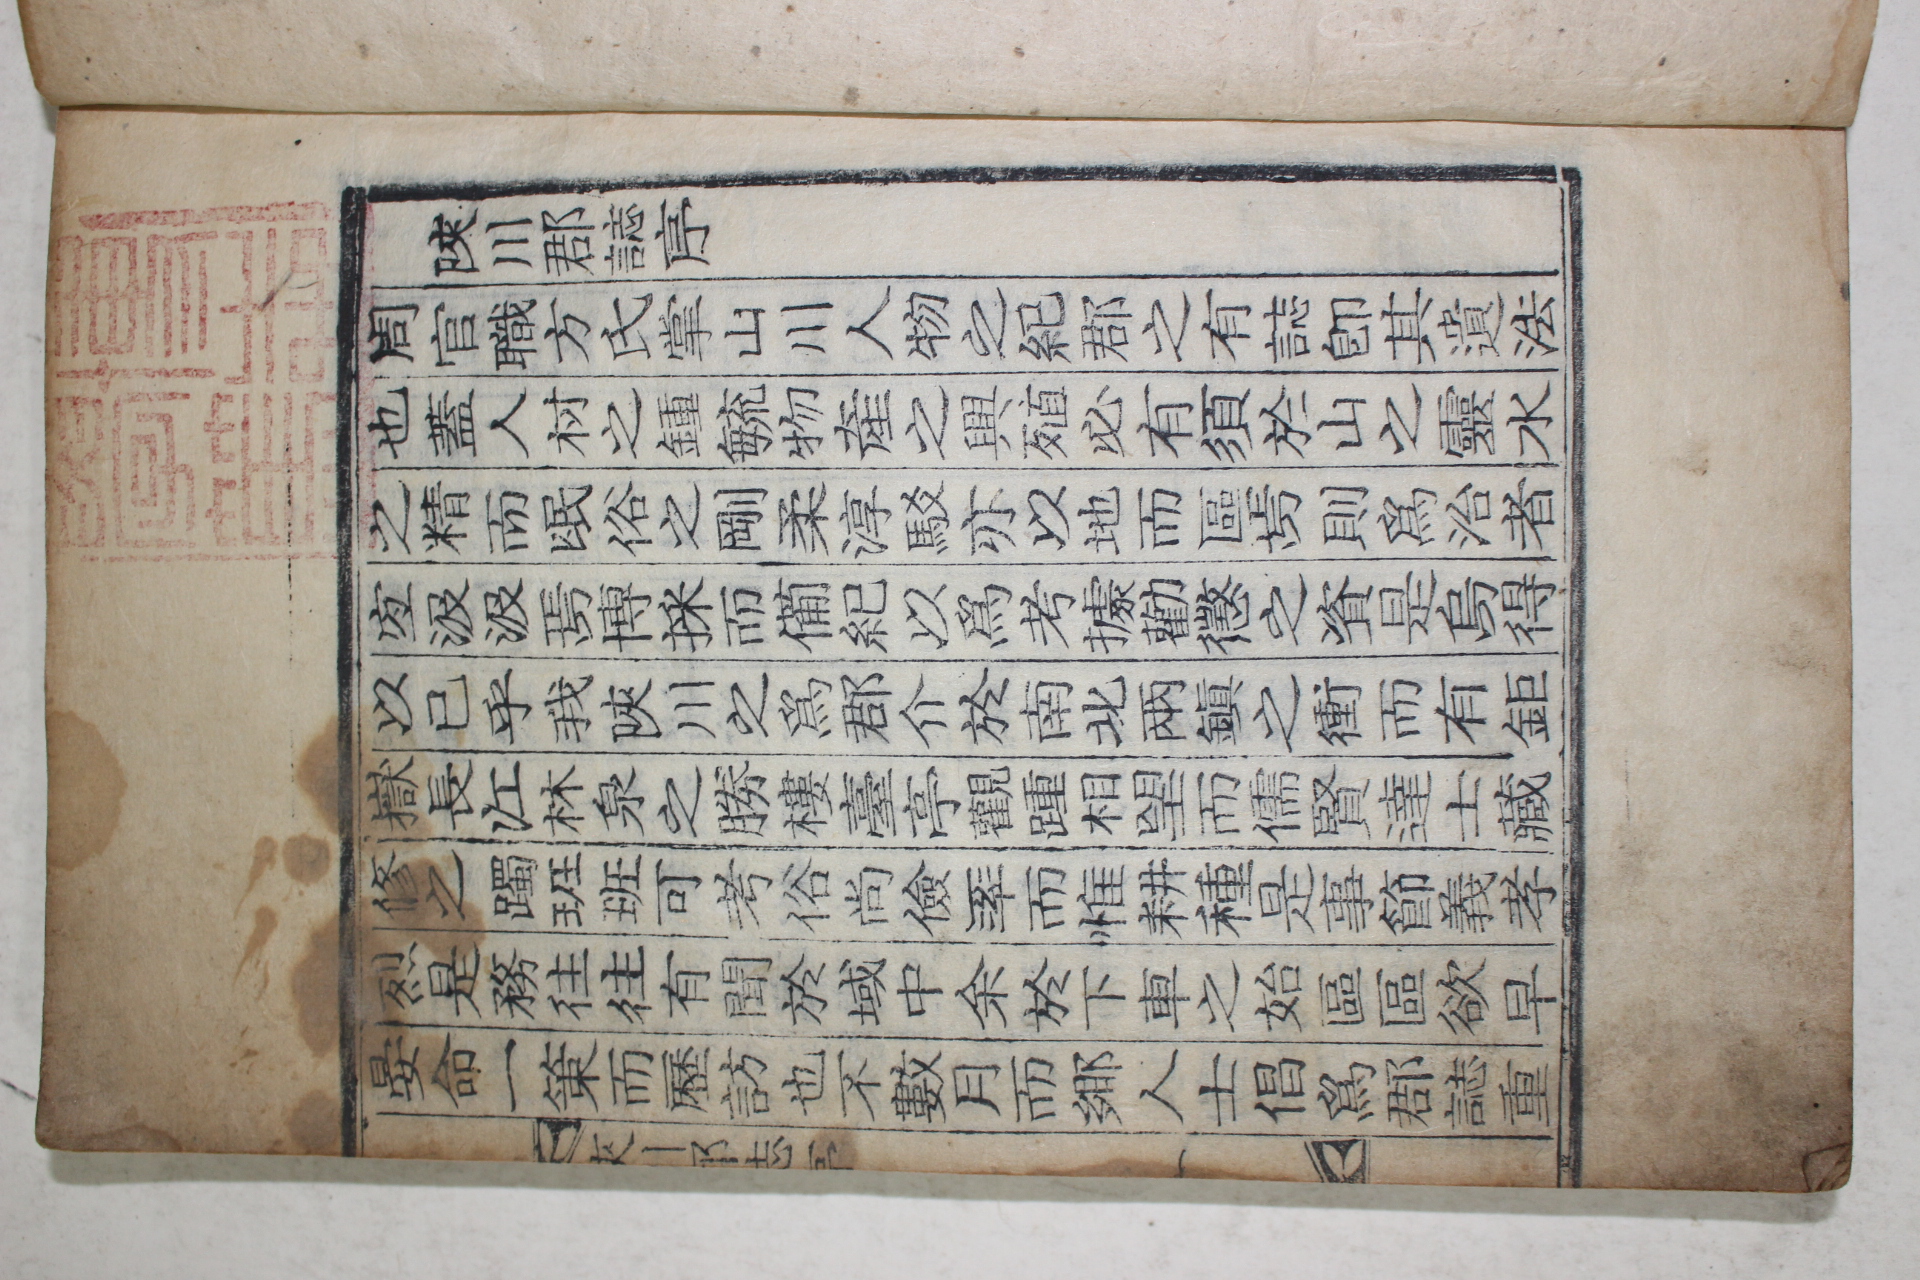 陜川郡誌序
周官職方氏掌山川人物之紀郡之有誌卽其遺法
也蓋人材之鍾毓物産之興殖必有須於山之靈水
之精而民俗之剛柔淳駁亦以地而區焉則爲治者
宜汲汲焉博採而備紀以爲考據勸懲之資是烏得
以已乎我陜川之爲郡介於南北兩鎭之衝而有鉅
嶽長江林泉之勝樓臺亭觀踵相望而儒賢達士藏
修之躅班班可考俗尚儉率而惟耕種是事節義孝
烈是務往往有聞於域中余於下車之始區區欲早
晏命一策而歷訪也不數月而鄕人士倡爲郡誌重
陜川郡誌序 一